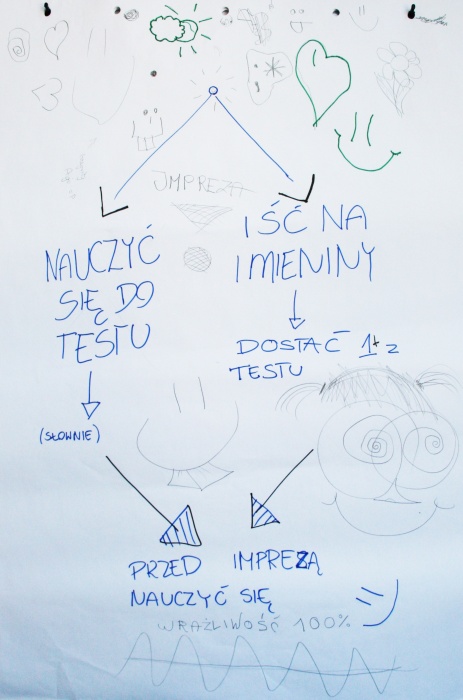 IMPREZA
NAUCZYĆ
SIĘ DO
TESTU
(SŁOWNIE)
IŚĆ NA
IMIENINY
DOSTAĆ 1+ z
TESTU
PRZED IMPREZĄ
NAUCZYĆ SIĘ
WRAŻLIWOŚĆ 100%